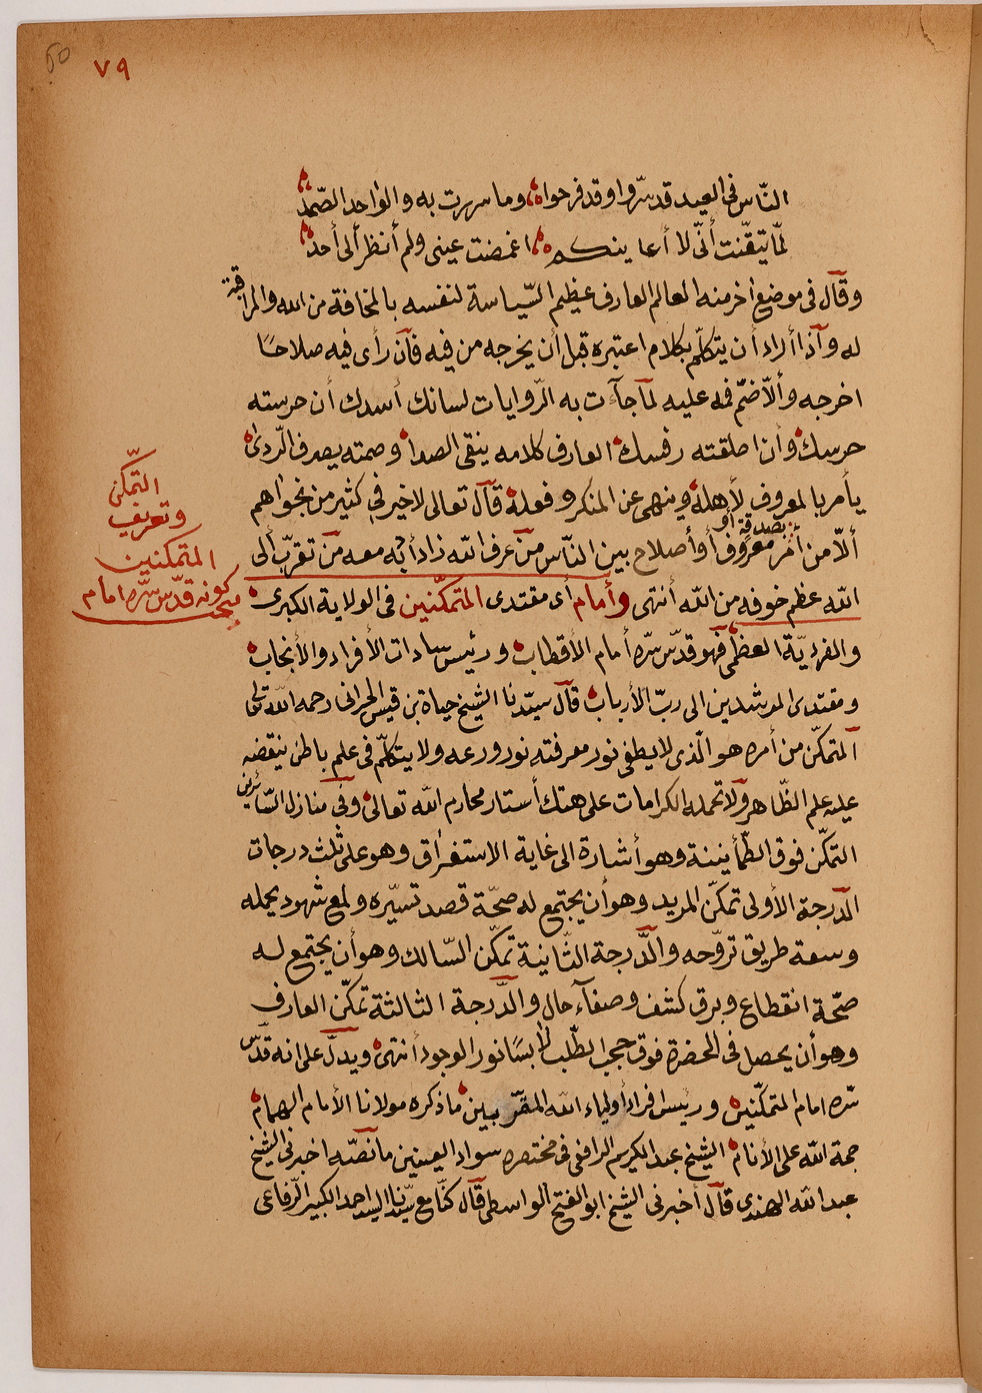 ٧٩
50
النّاس فى العيد قد سرّوا وقد فرحوا ۞ وما سررت به والواحد الصّمد
لمّا تيقّنت أنّى لا أعاينكم ۞ اغمضت عينى ولم أنظر ألى أحد
وقال فى موضع اخر منه العالم العارف عظيم السّياسة لنفسه بالمخافة من الله والمراقبة
له وأذا أراد أن يتكلّم بكلام اعتبره قبل أن يخرجه من فيه فأن رأى فيه صلاحًا
اخرجه وألّا ضمّ فمه عليه لما جآءت به الرّوايات لسانك أسدك أن حرسته
حرسك وأن اطلقته رفسك العارف كلامه ينقى الصدا وصمته يصرف الرّدى
يأمر بالمعروف لأهله وينهى عن المنكر وفعله قال تعالى لا خير فى كثير من نجواهم
ألّا من أمر بصدقة أو معروف أو أصلاح بين النّاس من عرف الله زاد أبه معه من تقرّب ألى
الله عظم خوفه من الله أنتهى وأمام أى مقتدى المتمكّنين فى الولاية الكبرى
والفرديّة العظمى فهو قدّس سرّه أمام الأقطاب ورئيس سادات الأفراد والأنجاب
ومقتدى المرشدين الى ربّ الأرباب قال سيّدنا الشيخ حياة بن قيس الحرانى رحمه الله تعالى
المتمكّن من أمره هو الّذى لا يطفى نور معرفته نور ورعه ولا يتكلّم فى علم باطن ينقضه
عليه علم الظّاهر ولا تحمله الكرامات على هتك أستار محارم الله تعالى وفى منازل السّائرين
التمكّن فوق الطّمأنينة وهو أشارة الى غاية الاستغراق وهو على ثلث درجات
الدّرجة الأولى تمكّن المريد وهو أن يجتمع له صحّة قصد تسيّره ولمع شهود يحمله
وسعة طريق تروّحه والدّرجة الثّانية تمكّن السّالك وهو أن يجتمع له
صحّة انقطاع وبرق كشف وصفآء حال والدّرجة الثالثة تمكّن العارف
وهو أن يحصل فى الحضرة فوق حجب الطّلب لابسًا نور الوجود أنتهى ويدلّ على انه قدّس
سّره امام المتمكّنين ورئيس افراد أولياء الله المقرّبين ما ذكره مولانا الأمام الهمام
حجة الله على الأنام الشيخ عبد الكريم الرافعى فى مختصره سواد العينين ما نصّه اخبرنى الشيخ
عبد الله الهندى قال أخبرنى الشيخ ابو الفتح الواسطى قال كنّا مع سيّدنا السيد احمد الكبير الرّفاعى
التمكّن
وتعريف
المتمكنين
كونه قدّس سرّه امام